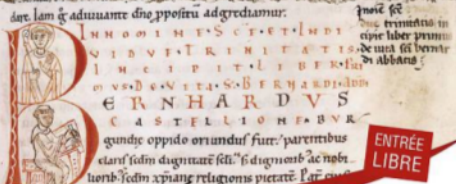 dant. Iam g̅ adiuuante dn̅o ppositu̅ adgrediamur.
IN NOMINE·S̅C̅T̅E·INDI
VIDVE·TRINITATIS·
INCIPIT·LIBER·PRI
MVS·DE·VITA·S·BERNHARDI·ABB
BERNHARDVS
CASTELLIONE·BVR
gundie oppido oriundus fuit: parentibus
claris scd̅m dignitate̅ scl̅i. s; dignioribꝰ ac nobi
liorib; scd̅m xp̅iane religionis pietate̅.
In noie̅ sc̅e
due trinitatis in
cipit liber primus
de uita sc̅i bernar
di abbatis
ENTRÉE
LIBRE